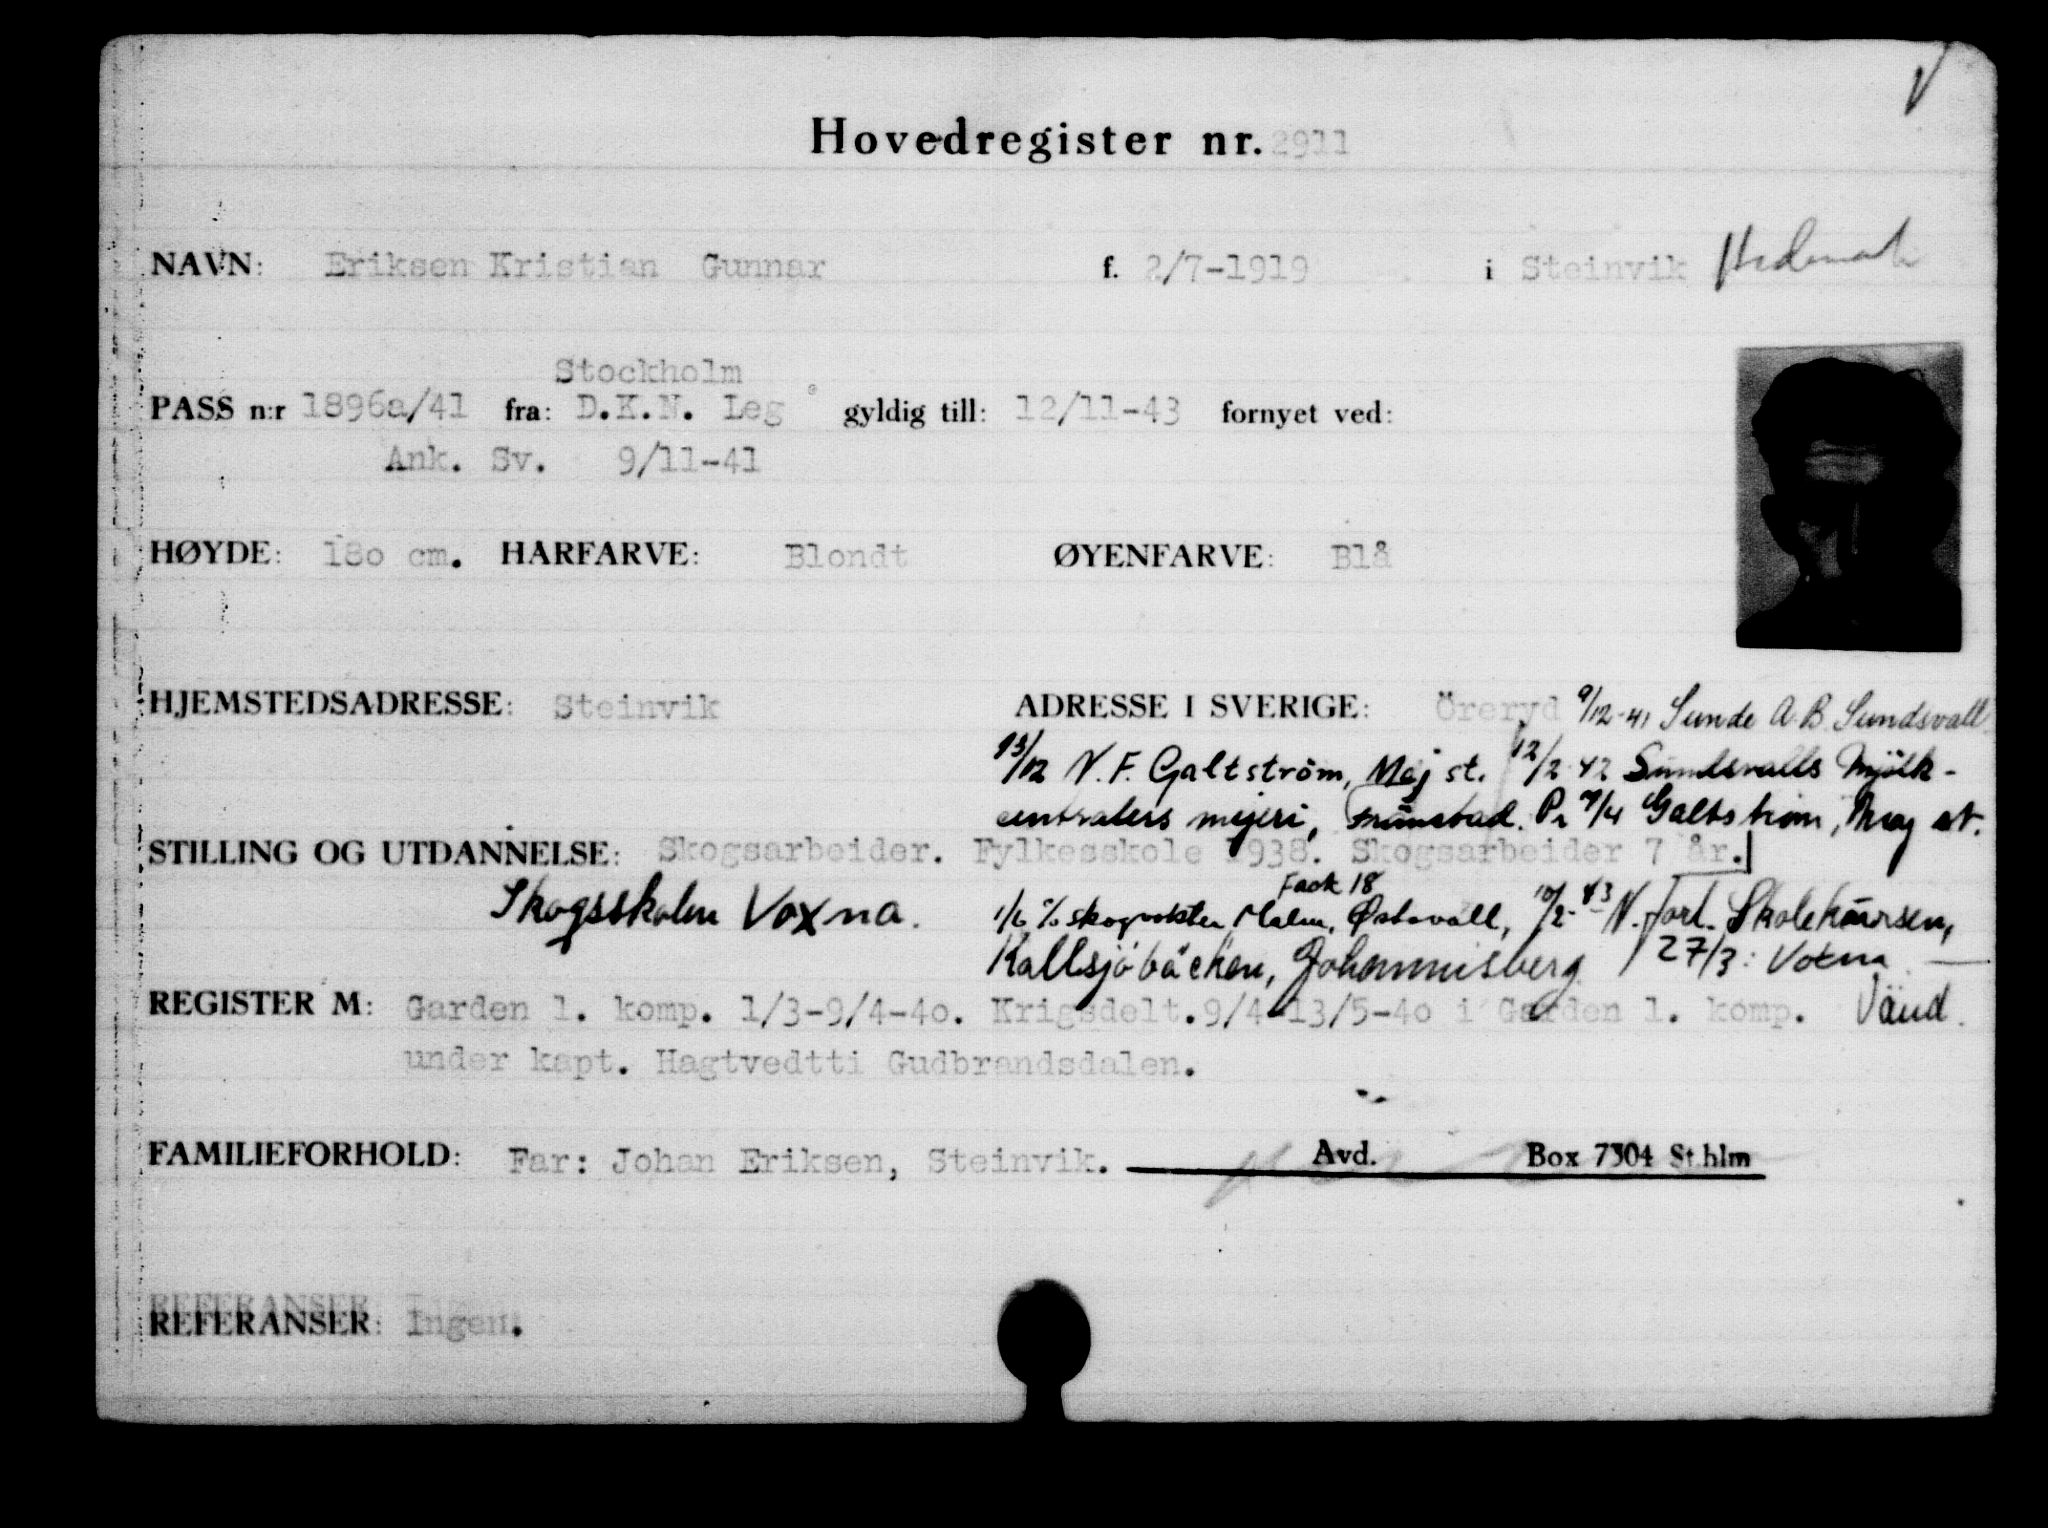 Hovedregister nr. 2911
NAVN: Eriksen Kristian Gunnar f. 2/7-1919 i Steinvik Hedmark
Stockholm
PASS n:r 1896a/41 fra: D.K.N. Leg gyldig till: 12/11-43 fornyet ved:
Ank. Sv. 9/11-41
HØYDE: 180 cm. HARFARVE: Blondt ØYENFARVE: Blå
HJEMSTEDSADRESSE: Steinvik ADRESSE I SVERIGE: Öreryd 9/12-41 Sunde A.B. Sundsvall
13/12 N.F. Galtström, Maj st. 12/2-42 Sundsvalls Mjölk-
centralers mejeri, Pr Galtström, st.
STILLING OG UTDANNELSE: Skogsarbeider. Fylkesskole 1938. Skogsarbeider 7 år.
Fack 18
Skogsskolen Voxna. 1/6 % skogvokter Malm, Østavall, 10/2-43 N. Fort. Skolekursen,
Kallsjöbäcken, Johannisberg 27/3: Voxna
REGISTER M: Garden 1. komp. 1/3-9/4-40. Krigsdelt. 9/4-13/5-40 i Garden 1. komp. Vänd.
under kapt. Hagtvedtti Gudbrandsdalen.
FAMILIEFORHOLD: Far: Johan Eriksen, Steinvik. Avd. Box 7304 St.hlm
REFERANSER
REFERANSER: Ingen.